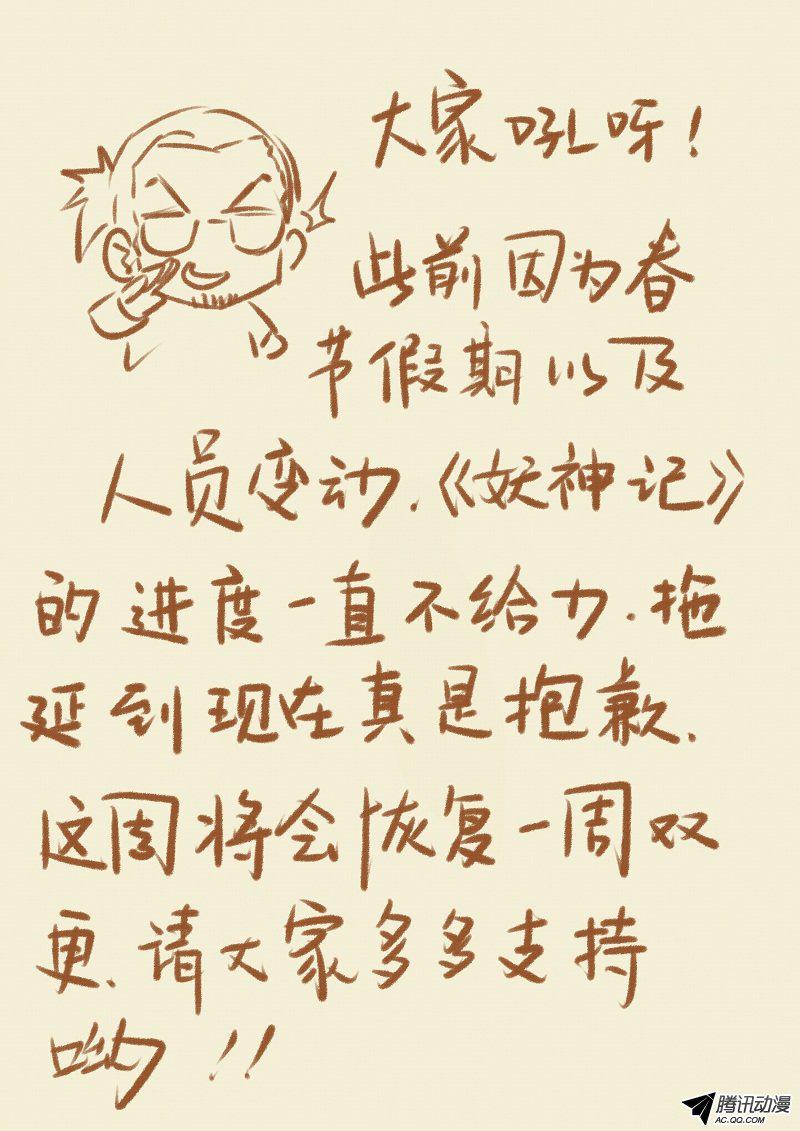 大家吼呀！
此前因为春
节假期以及
人员变动.《妖神记》
的进度一直不给力.拖
延到现在真是抱歉.
这周将会恢复一周双
更.请大家多多支持
呦！！
腾讯动漫
AC.QQ.COM